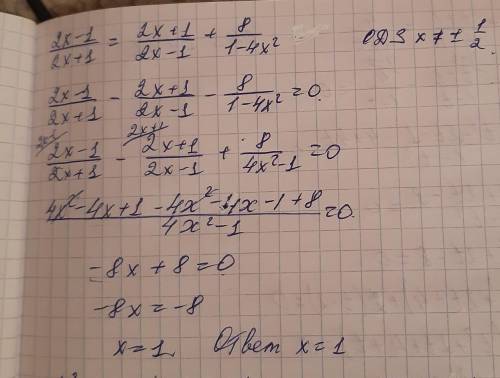 (2x-1)/(2x+1) = (2x+1)/(2x-1) + 8/(1-4x²) ОДЗ x ≠ ± 1/2.
(2x-1)/(2x+1) - (2x+1)/(2x-1) - 8/(1-4x²) = 0.
2x-1 2x+1
(2x-1)/(2x+1) - (2x+1)/(2x-1) + 8/(4x²-1) = 0
(4x²-4x+1-4x²-4x-1+8)/(4x²-1) = 0.
-8x+8=0
-8x=-8
x=1. Ответ x=1